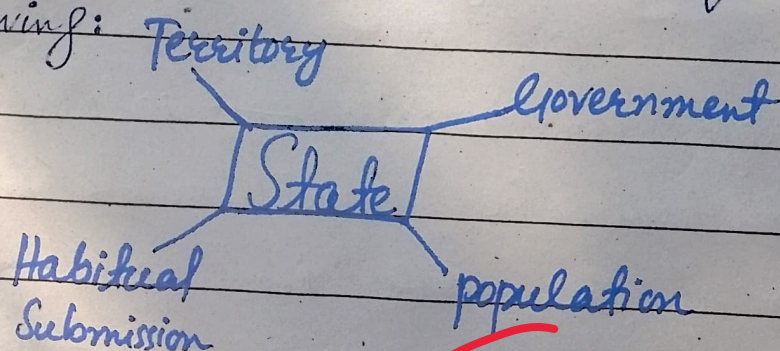 ving:
Territory
Government
State
Habitual
Submission
population